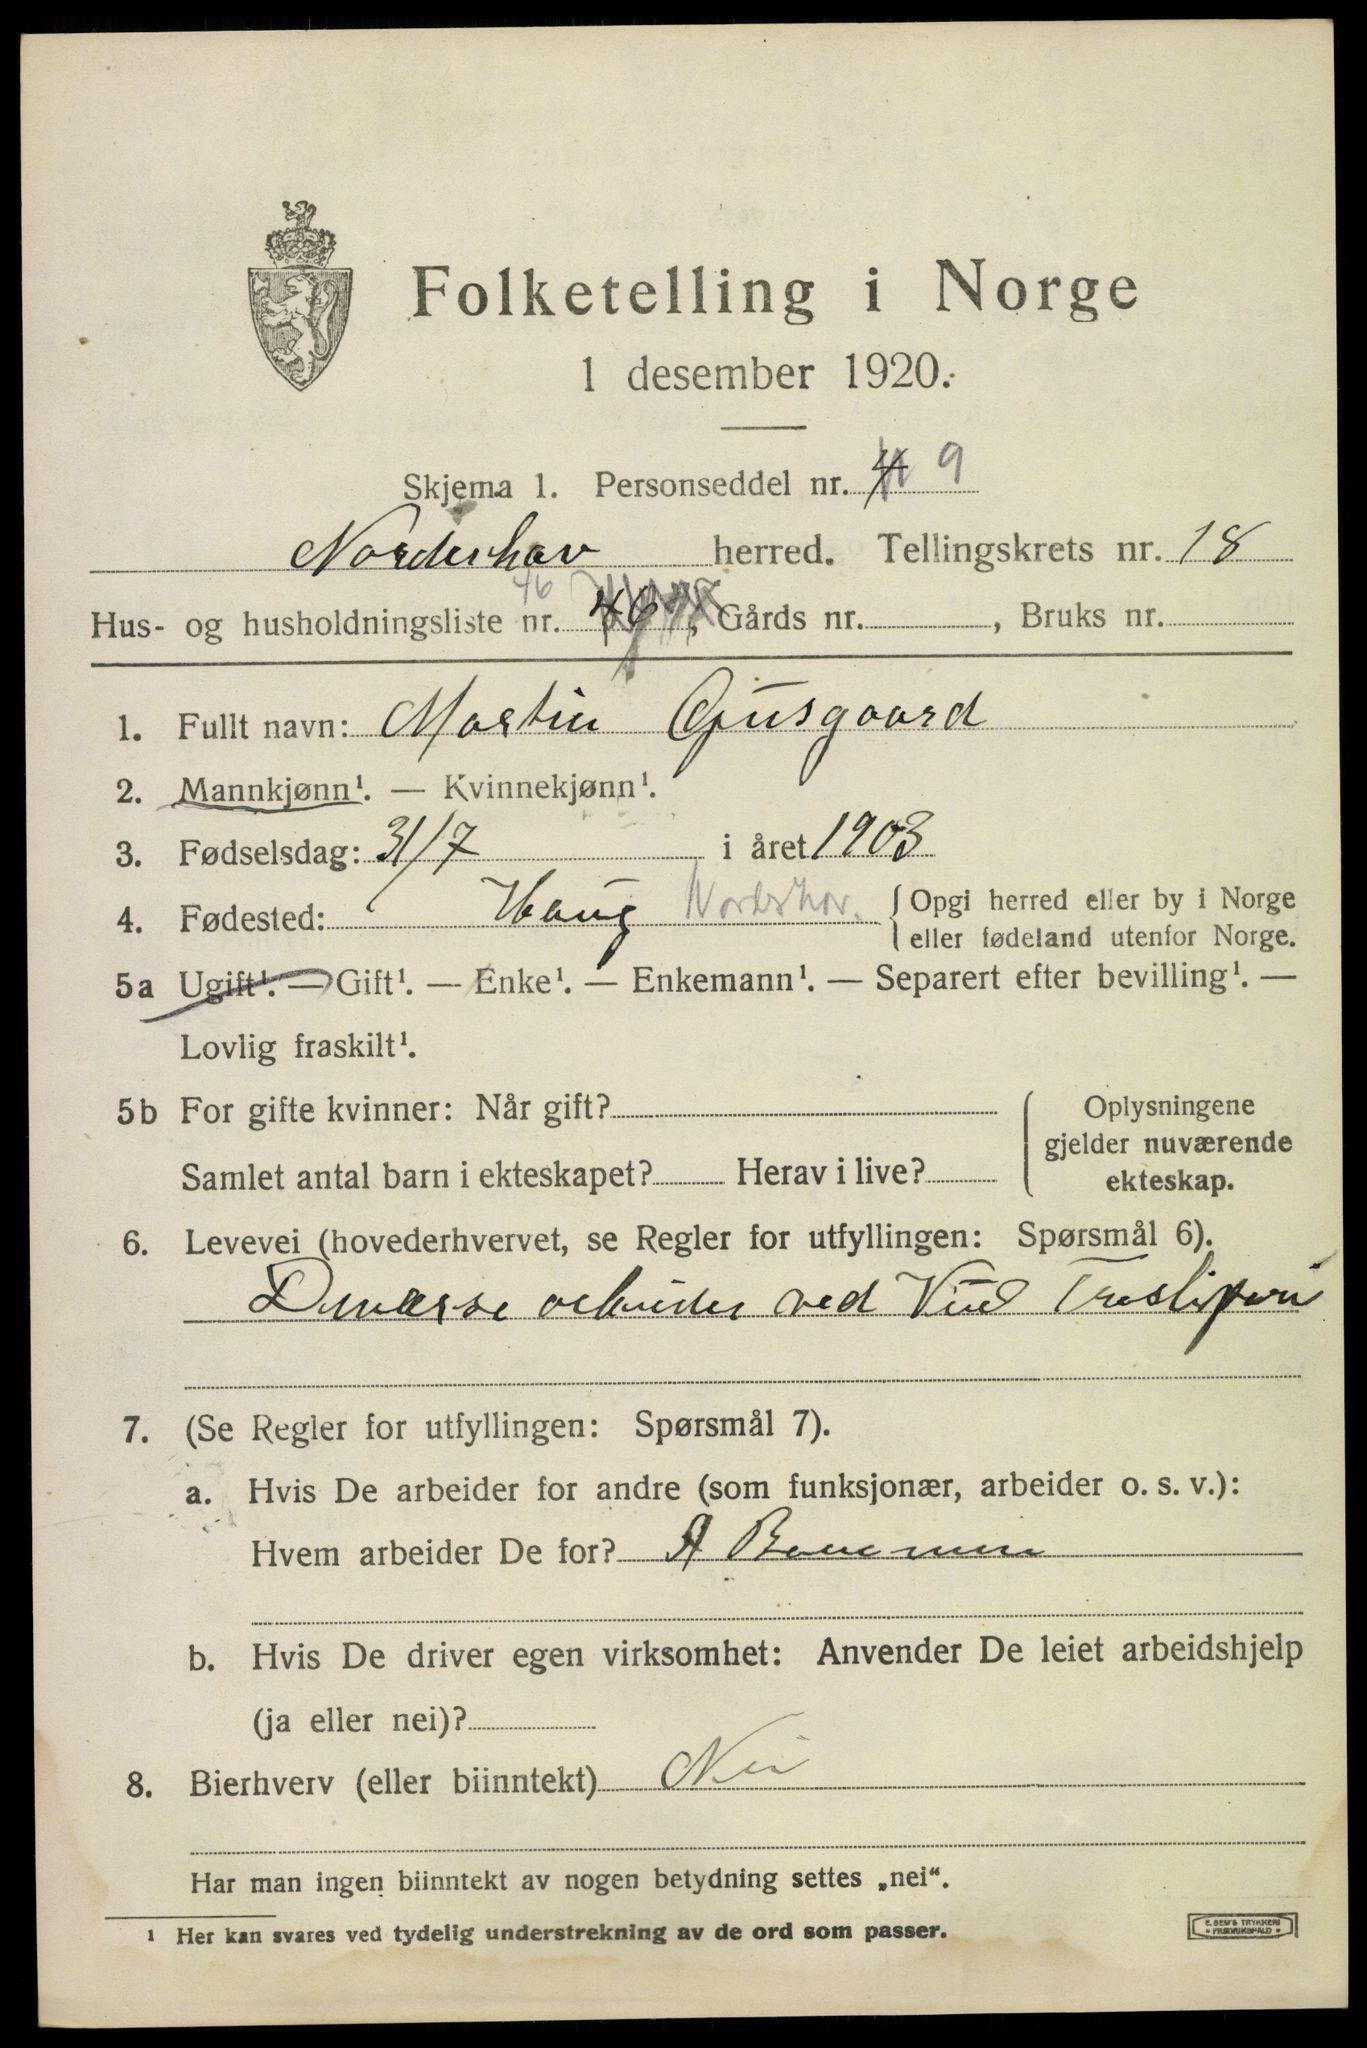 Folketelling i Norge
1 desember 1920.
Skjema 1. Personseddel nr. 4 9
Norderhov herred. Tellingskrets nr. 18
46
Hus- og husholdningsliste nr. 46, Gårds nr. , Bruks nr.
1. Fullt navn: Martin Gusgaard
2. Mannkjønn¹. — Kvinnekjønn¹.
3. Fødselsdag: 31/7 i året 1903
4. Fødested: Haug Norderhov. { Opgi herred eller by i Norge
eller fødeland utenfor Norge.
5a Ugift¹. — Gift¹. — Enke¹. — Enkemann¹. — Separert efter bevilling¹. —
Lovlig fraskilt¹.
5b For gifte kvinner: Når gift? { Oplysningene
gjelder nuværende
Samlet antal barn i ekteskapet? Herav i live? ekteskap.
6. Levevei (hovederhvervet, se Regler for utfyllingen: Spørsmål 6).
Diverse arbeider ved Viul Tresliperi
7. (Se Regler for utfyllingen: Spørsmål 7).
a. Hvis De arbeider for andre (som funksjonær, arbeider o. s. v.):
Hvem arbeider De for? A
b. Hvis De driver egen virksomhet: Anvender De leiet arbeidshjelp
(ja eller nei)?
8. Bierhverv (eller biinntekt) Nei
Har man ingen biinntekt av nogen betydning settes „nei“.
¹ Her kan svares ved tydelig understrekning av de ord som passer.
E. SEM'S TRYKKERI
» FREDRIKSHALD «